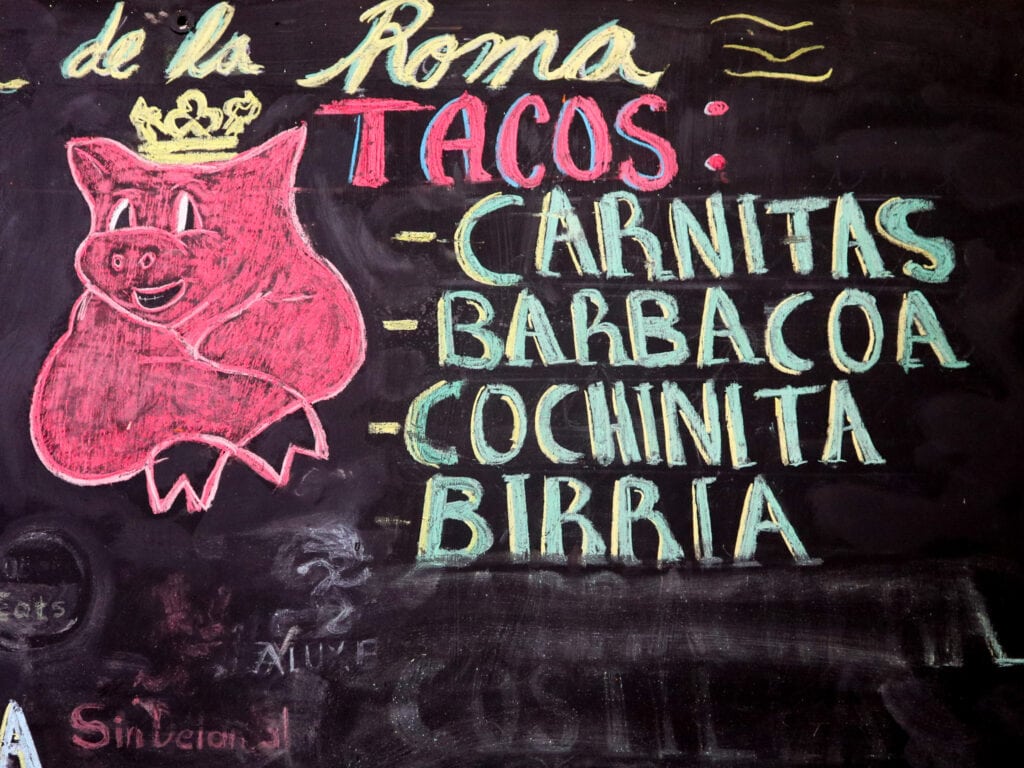 de la Roma
TACOS:
- CARNITAS
- BARBACOA
- COCHINITA
- BIRRIA
Eats
COSTIL
A